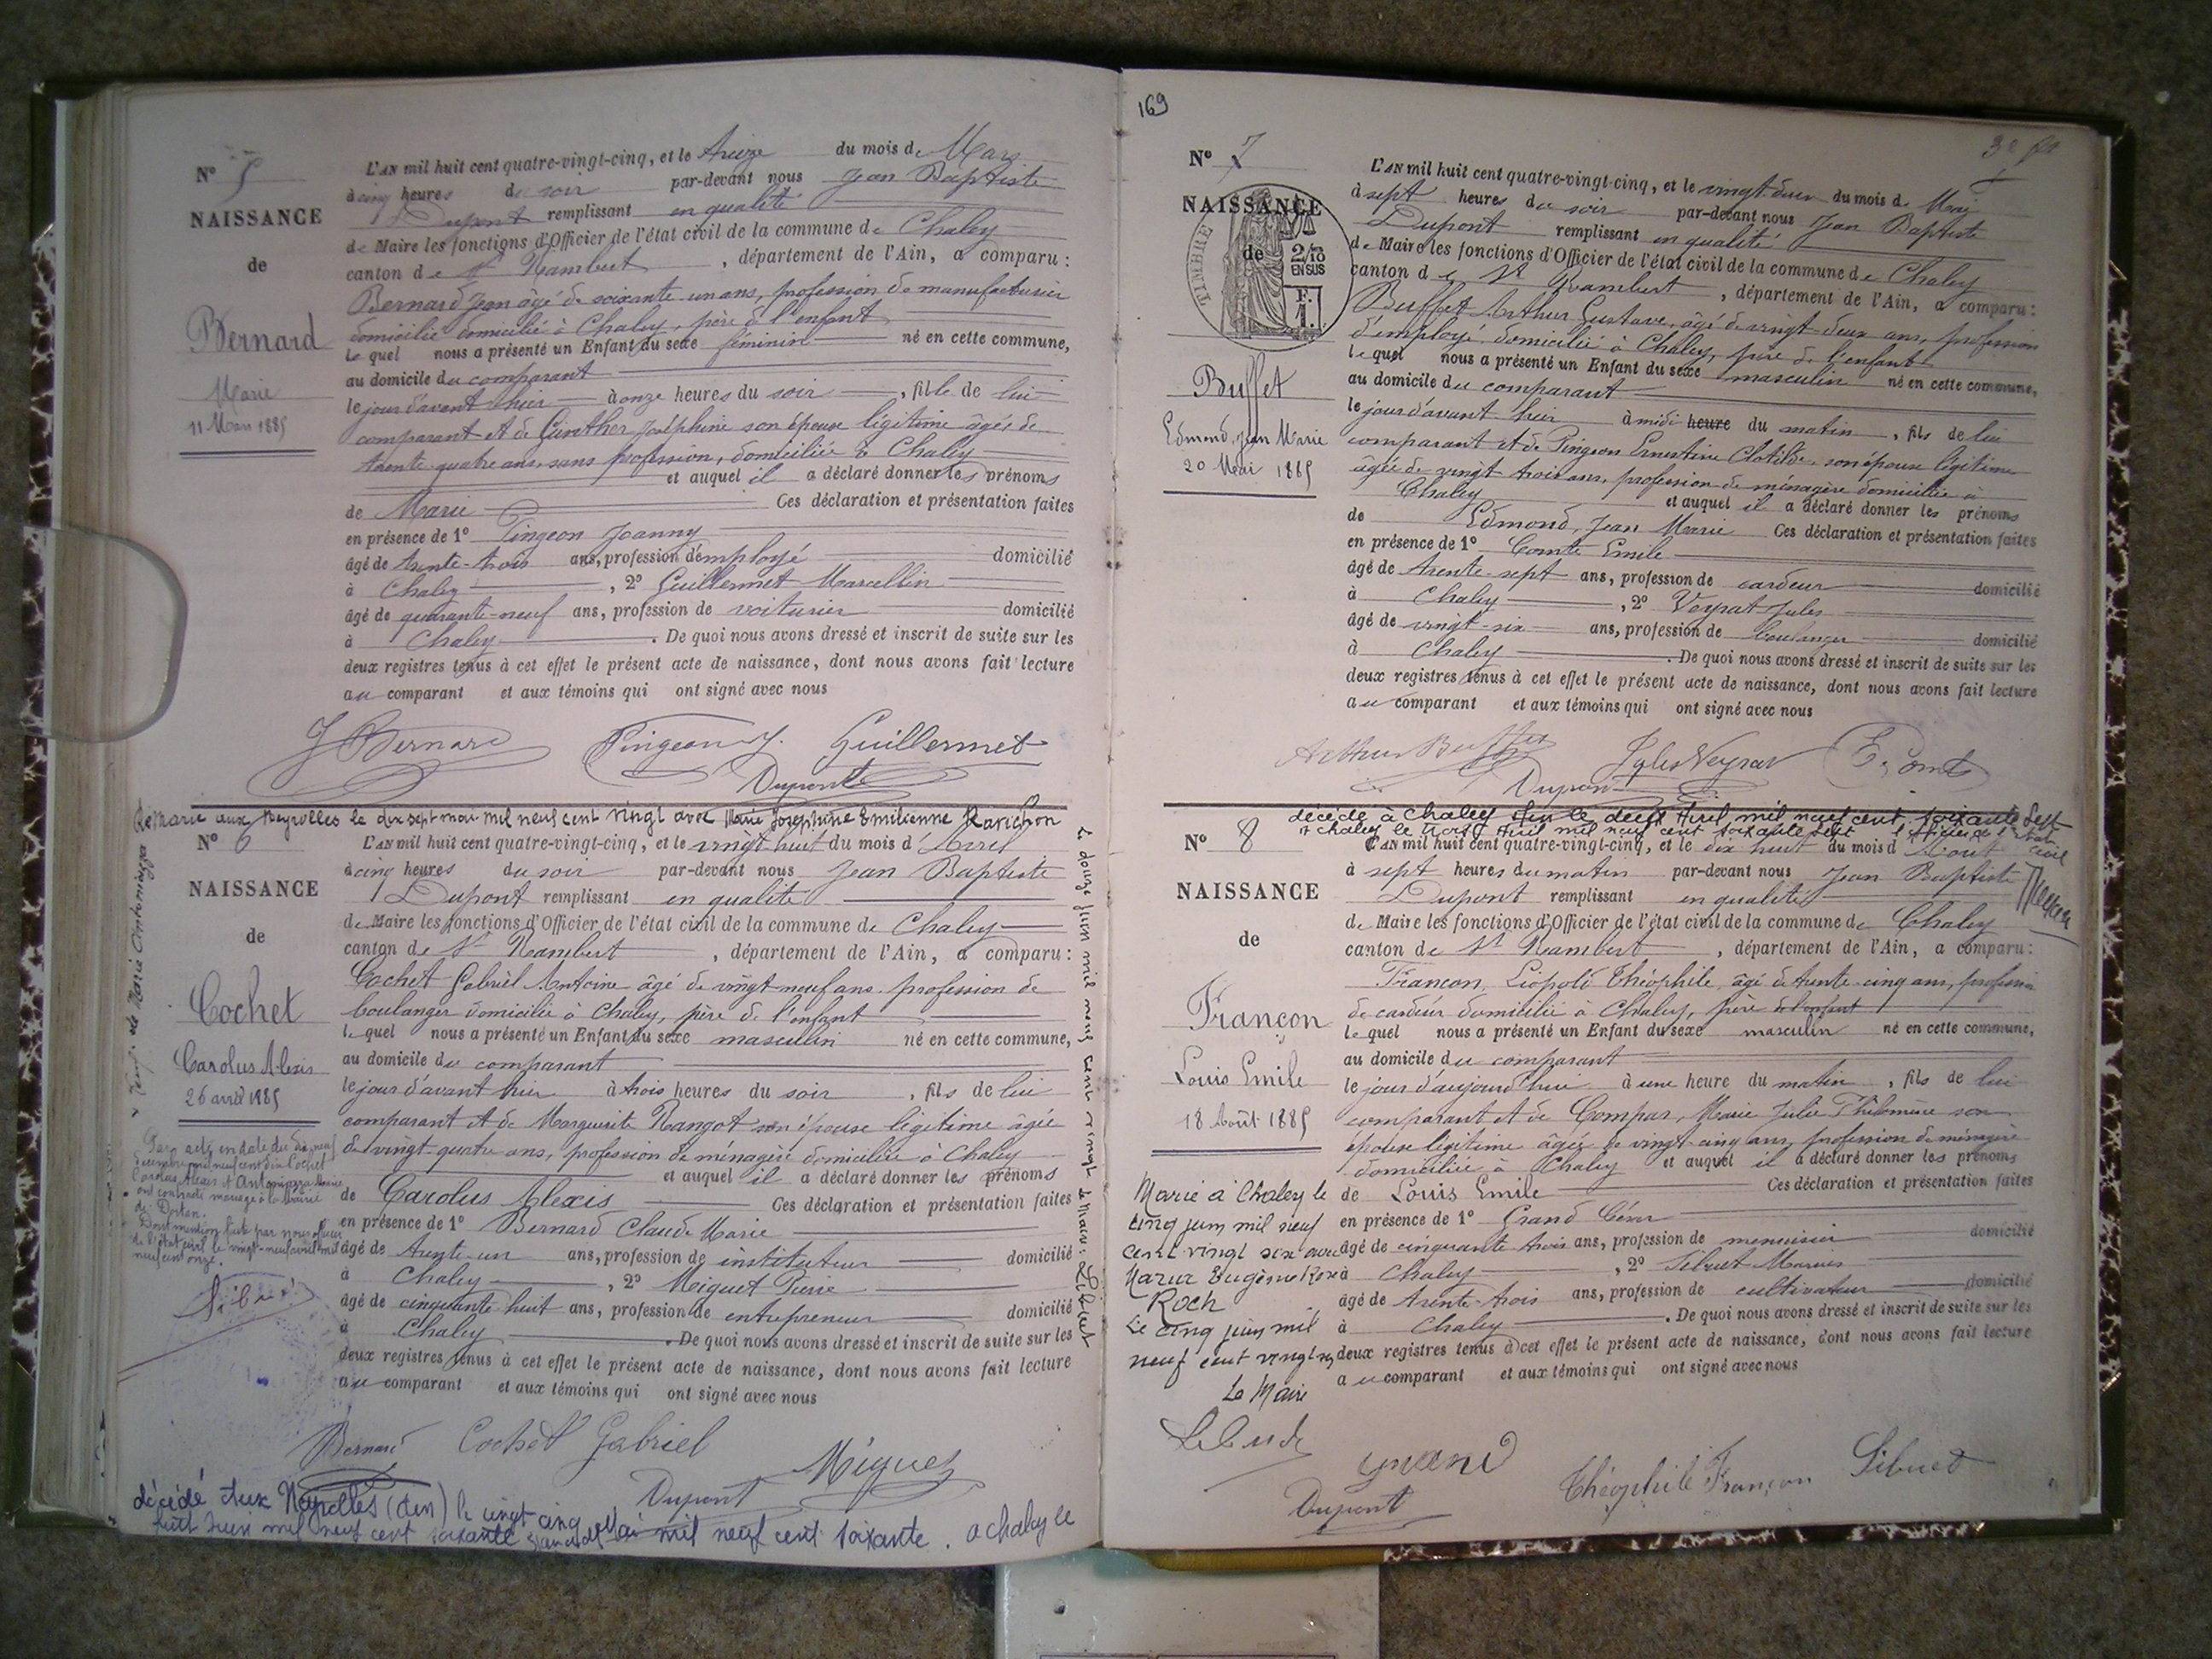 N° 5
NAISSANCE
de
Bernard
Marie
11 Mars 1885
L'AN mil huit cent quatre-vingt-cinq, et le treize du mois de Mars
à cinq heures du soir par-devant nous Jean Baptiste
Dupont remplissant en qualité
de Maire les fonctions d'Officier de l'état civil de la commune de Chaley
canton de St Rambert, département de l'Ain, a comparu :
Bernard Jean âgé de soixante un ans, profession de manufacturier
domicilié domicilié à Chaley, père de l'enfant
lequel nous a présenté un Enfant du sexe féminin né en cette commune,
au domicile du comparant
le jour d'avant hier à onze heures du soir, fille de lui
comparant et de Günther Joséphine son épouse légitime âgée de
trente-quatre ans, sans profession, domiciliée à Chaley
et auquel il a déclaré donner les prénoms
de Marie Ces déclaration et présentation faites
en présence de 1° Pingeon Joanny
âgé de trente-trois ans, profession d'employé domicilié
à Chaley, 2° Guillermet Marcellin
âgé de quarante-neuf ans, profession de voiturier domicilié
à Chaley. De quoi nous avons dressé et inscrit de suite sur les
deux registres tenus à cet effet le présent acte de naissance, dont nous avons fait lecture
au comparant et aux témoins qui ont signé avec nous
J Bernard Pingeon J. Guillermet
Dupont
Remarié aux Neyrolles le dix sept mai mil neuf cent vingt avec Marie Josephine Emilienne Ravichon
Le douze juin mil neuf cent vingt Le Maire : Sibuet
N° 6
NAISSANCE
de
Cochet
Carolus Alexis
26 avril 1885
Par acte en date du dix neuf
décembre mil neuf cent dix Cochet
Carolus Alexis et Antoniazza Marie
ont contracté mariage à la Mairie
de Dortan.
Dont mention faite par nous officier
de l'état civil le vingt-neuf
neuf cent onze.
Sibuet
L'AN mil huit cent quatre-vingt-cinq, et le vingt huit du mois d'Avril
à cinq heures du soir par-devant nous Jean Baptiste
Dupont remplissant en qualité
de Maire les fonctions d'Officier de l'état civil de la commune de Chaley
canton de St Rambert, département de l'Ain, a comparu :
Cochet Gabriel Antoine âgé de vingt neuf ans profession de
boulanger domicilié à Chaley, père de l'enfant
lequel nous a présenté un Enfant du sexe masculin né en cette commune,
au domicile du comparant
le jour d'avant hier à trois heures du soir, fils de lui
comparant et de Marguerite Rangot son épouse légitime âgée
de vingt-quatre ans, profession de ménagère domiciliée à Chaley
et auquel il a déclaré donner les prénoms
de Carolus Alexis Ces déclaration et présentation faites
en présence de 1° Bernard Claude Marie
âgé de trente-un ans, profession de instituteur domicilié
à Chaley, 2° Miguet Pierre
âgé de cinquante huit ans, profession de entrepreneur domicilié
à Chaley. De quoi nous avons dressé et inscrit de suite sur les
deux registres tenus à cet effet le présent acte de naissance, dont nous avons fait lecture
au comparant et aux témoins qui ont signé avec nous
Bernard Cochet Gabriel Miguet
Dupont
décédé aux Neyrolles (Ain) le vingt cinq Mai mil neuf cent soixante. a chaley le
huit Juin mil neuf cent soixante
169
N° 7
NAISSANCE
de
TIMBRE
2/10
EN SUS
F.
1.
Buffet
Edmond, Jean Marie
20 Mai 1885
L'AN mil huit cent quatre-vingt-cinq, et le vingt-deux du mois de Mai
à sept heures du soir par-devant nous Jean Baptiste
Dupont remplissant en qualité
de Maire les fonctions d'Officier de l'état civil de la commune de Chaley
canton de St Rambert, département de l'Ain, a comparu :
Buffet Arthur Gustave, âgé de vingt-deux ans, profession
d'employé domicilié à Chaley, père de l'enfant
lequel nous a présenté un Enfant du sexe masculin né en cette commune,
au domicile du comparant
le jour d'avant hier à midi heure du matin, fils de lui
comparant et de Pingeon Ernestine Clotilde, son épouse légitime
âgée de vingt trois ans, profession de ménagère domiciliée à
Chaley et auquel il a déclaré donner les prénoms
de Edmond, Jean Marie Ces déclaration et présentation faites
en présence de 1° Comte Emile
âgé de trente-sept ans, profession de cardeur domicilié
à Chaley, 2° Veyrat Jules
âgé de vingt-six ans, profession de boulanger domicilié
à Chaley. De quoi nous avons dressé et inscrit de suite sur les
deux registres tenus à cet effet le présent acte de naissance, dont nous avons fait lecture
au comparant et aux témoins qui ont signé avec nous
Arthur Buffet Jules Veyrat E. Comte
Dupont
décédé à Chaley le deux Avril mil neuf cent soixante sept
à chaley le trois Avril mil neuf cent soixante sept l'officier de l'état civil
N° 8
NAISSANCE
de
Françon
Louis Emile
18 Août 1885
Marié à Chaley le
cinq juin mil neuf
cent vingt six avec
Maria Eugènie Rose
Roch
Le cinq juin mil
neuf cent vingt six
Le Maire
L'AN mil huit cent quatre-vingt-cinq, et le dix huit du mois d'Aout
à sept heures du matin par-devant nous Jean Baptiste
Dupont remplissant en qualité
de Maire les fonctions d'Officier de l'état civil de la commune de Chaley
canton de St Rambert, département de l'Ain, a comparu :
Françon, Léopold Théophile, âgé de trente-cinq ans, profession
de cardeur domicilié à Chaley, père de l'enfant
lequel nous a présenté un Enfant du sexe masculin né en cette commune,
au domicile du comparant
le jour d'aujourd'hui à une heure du matin, fils de lui
comparant et de Compar, Marie Julie Philomène son
épouse légitime âgée de vingt-cinq ans, profession de ménagère
domiciliée à Chaley et auquel il a déclaré donner les prénoms
de Louis Emile Ces déclaration et présentation faites
en présence de 1° Grand César
âgé de cinquante trois ans, profession de menuisier domicilié
à Chaley, 2° Sibuet Marius
âgé de trente-trois ans, profession de cultivateur domicilié
à Chaley. De quoi nous avons dressé et inscrit de suite sur les
deux registres tenus à cet effet le présent acte de naissance, dont nous avons fait lecture
au comparant et aux témoins qui ont signé avec nous
Grand Théophile Françon Sibuet
Dupont